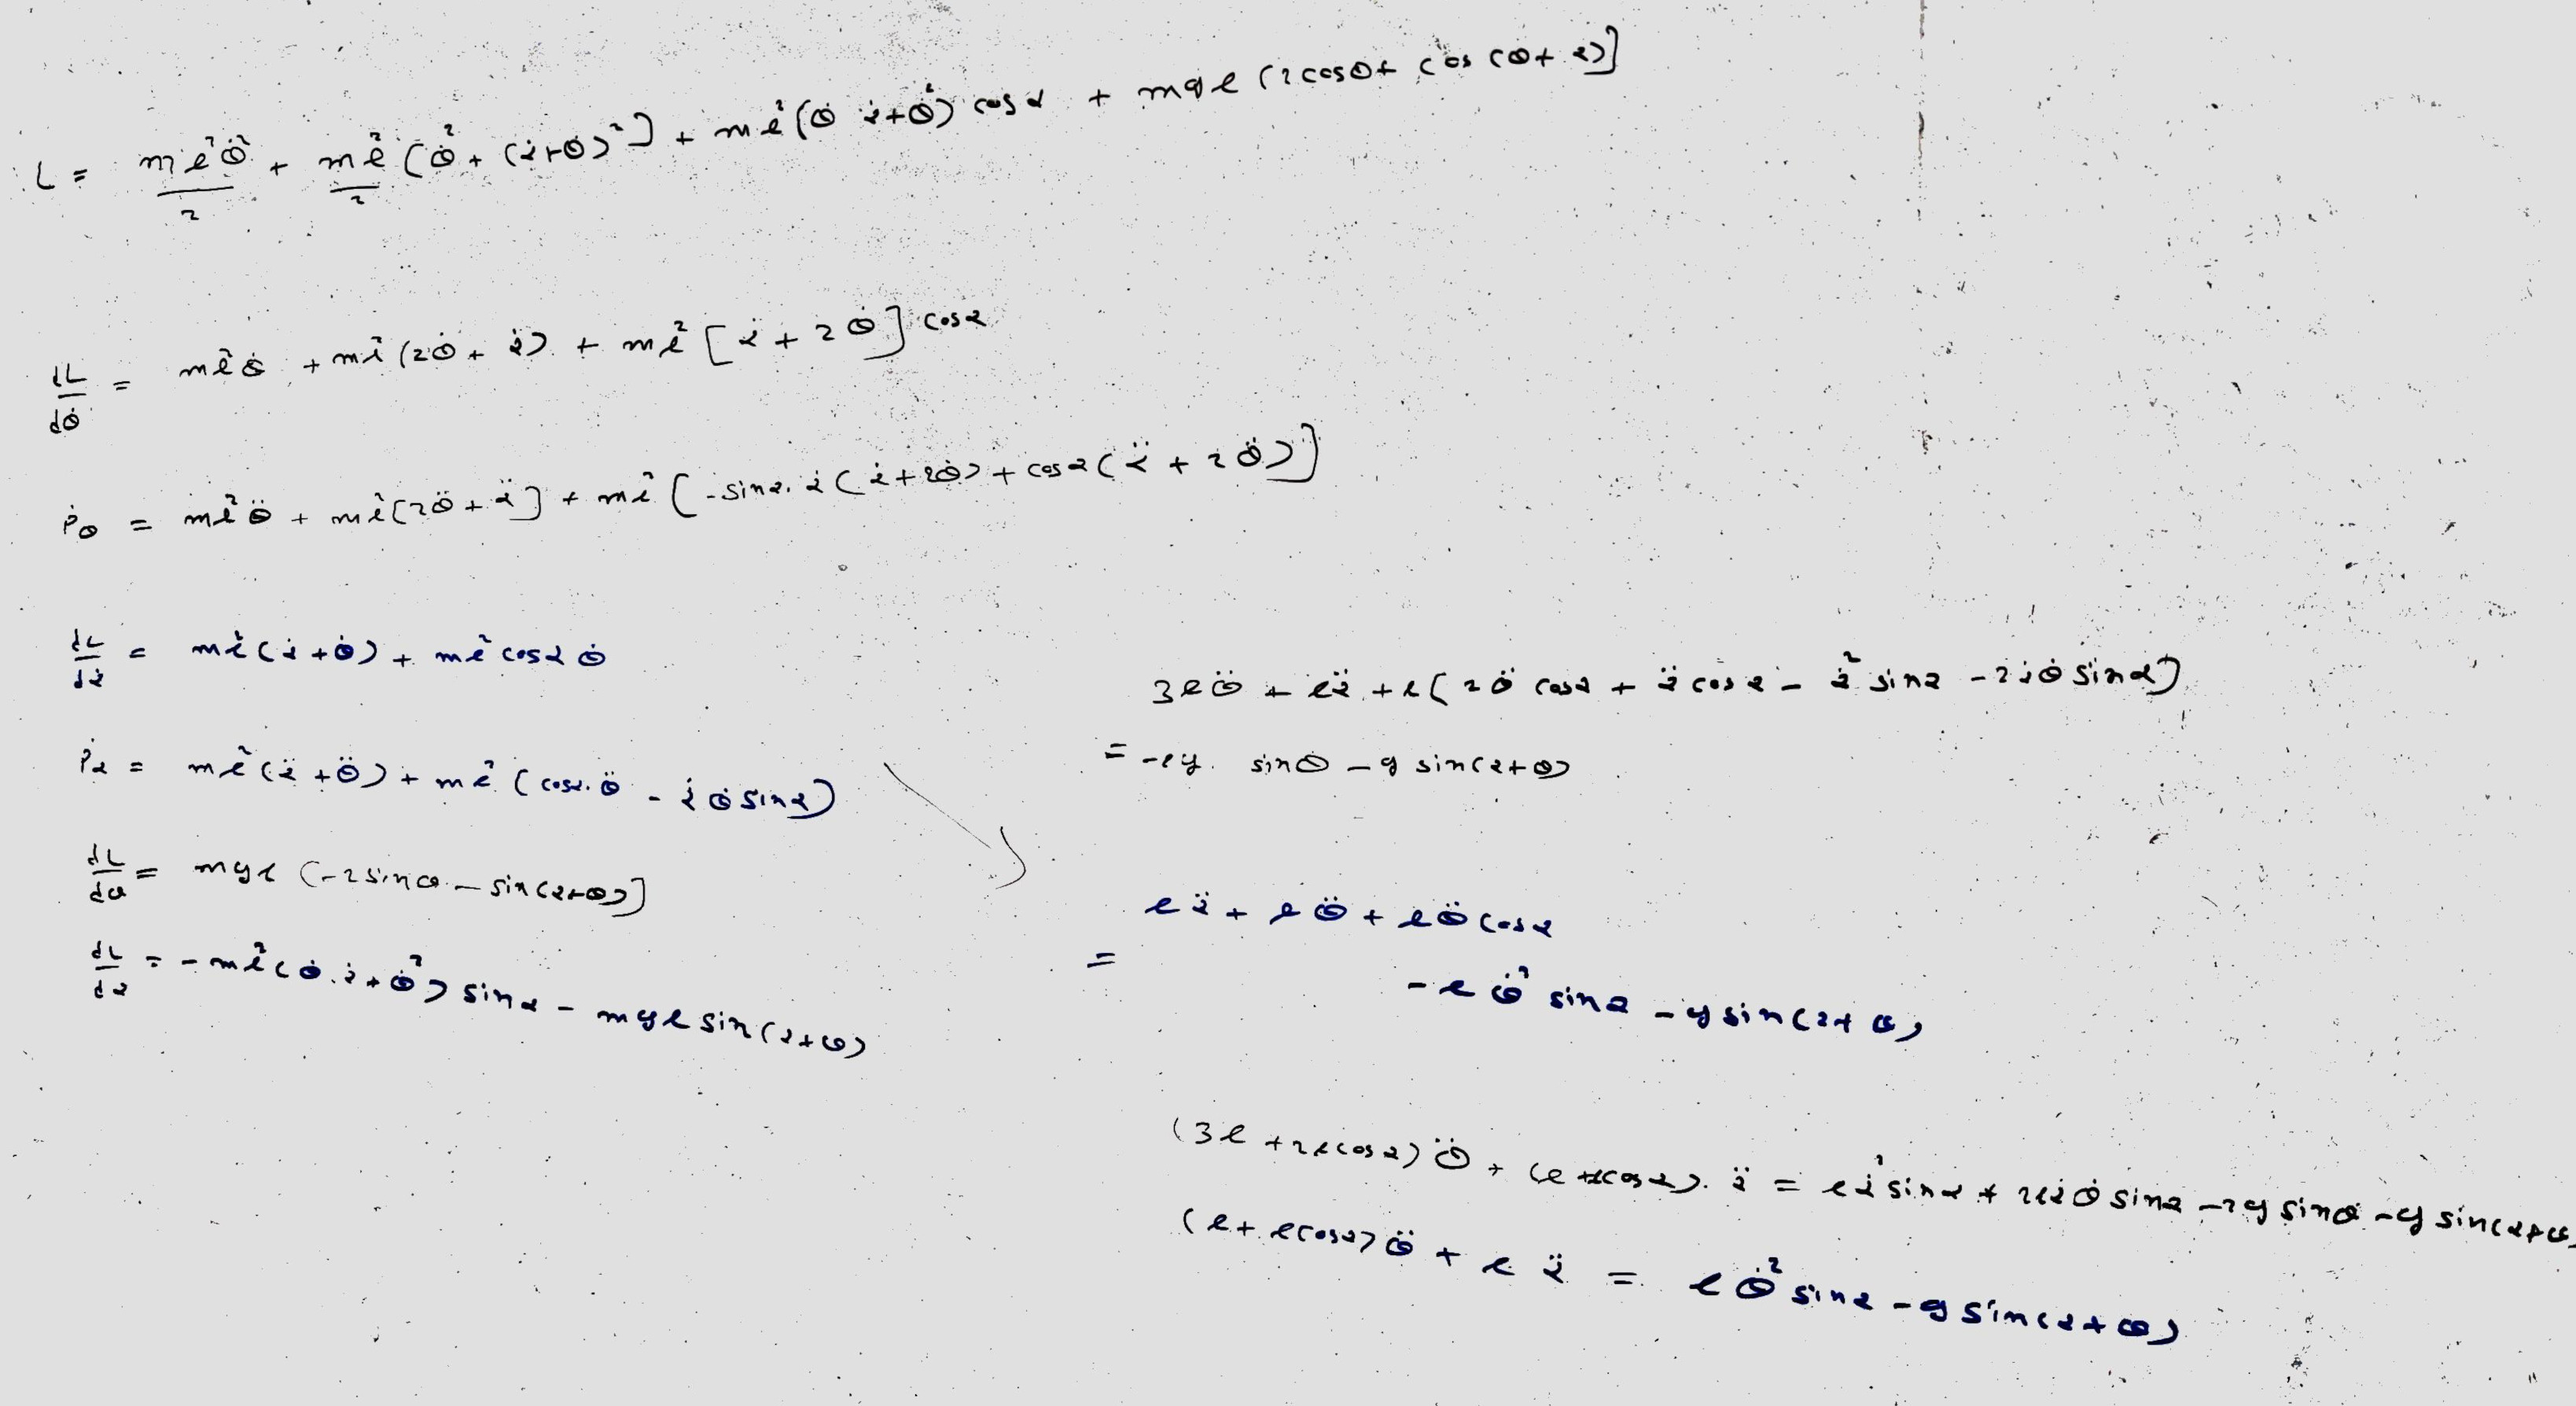 L = ml²θ̇²/2 + ml²/2 [θ̇² + (α̇+θ̇)²] + ml²(θ̇ α̇+θ̇²) cosα + mgl (2cosθ + cos(θ+α)]
dL/dθ̇ = ml²θ̇ + ml²(2θ̇ + α̇) + ml² [α̇ + 2θ̇] cosα
ṗθ = ml²θ̈ + ml²[2θ̈ + α̈] + ml² [-sinα. α̇ (α̇+2θ̇) + cosα(α̈ + 2θ̈)]
dL/dα̇ = ml²(α̇+θ̇) + ml² cosα θ̇
ṗα = ml²(α̈+θ̈) + ml² (cosα.θ̈ - α̇θ̇ sinα)
dL/dθ = mgl (-2sinθ - sin(α+θ)]
dL/dα = -ml²(θ̇.α̇+θ̇²) sinα - mgl sin(α+θ)
3lθ̈ + lα̈ + l[2θ̈ cosα + α̈ cosα - α̇² sinα - 2α̇θ̇ sinα)
= -2g. sinθ - g sin(α+θ)
lα̈ + lθ̈ + lθ̈ cosα
= - lθ̇² sinα - g sin(α+θ)
(3l + 2lcosα)θ̈ + (l+lcosα). α̈ = lα̇² sinα + 2lα̇θ̇ sinα - 2g sinθ - g sin(α+θ)
(l + lcosα)θ̈ + l α̈ = lθ̇² sinα - g sin(α+θ)